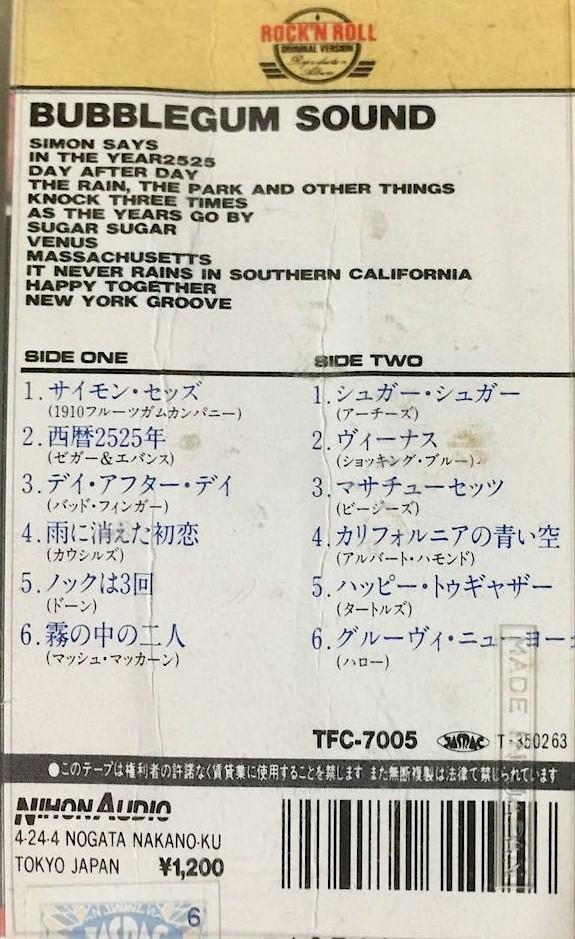 ROCK'N ROLL
ORIGINAL VERSION
Reproduction
Album
BUBBLEGUM SOUND
SIMON SAYS
IN THE YEAR2525
DAY AFTER DAY
THE RAIN, THE PARK AND OTHER THINGS
KNOCK THREE TIMES
AS THE YEARS GO BY
SUGAR SUGAR
VENUS
MASSACHUSETTS
IT NEVER RAINS IN SOUTHERN CALIFORNIA
HAPPY TOGETHER
NEW YORK GROOVE
SIDE ONE
1.サイモン・セッズ
(1910フルーツガムカンパニー)
2.西暦2525年
(ゼガー&エバンス)
3.デイ・アフター・デイ
(バッド・フィンガー)
4.雨に消えた初恋
(カウシルズ)
5.ノックは3回
(ドーン)
6.霧の中の二人
(マッシュ・マッカーン)
SIDE TWO
1.シュガー・シュガー
(アーチーズ)
2.ヴィーナス
(ショッキング・ブルー)
3.マサチューセッツ
(ビージーズ)
4.カリフォルニアの青い空
(アルバート・ハモンド)
5.ハッピー・トゥギャザー
(タートルズ)
6.グルーヴィ・ニューヨー
(ハロー)
MADE IN JAPAN
TFC-7005 JASRAC T-350263
●このテープは権利者の許諾なく賃貸業に使用することを禁じます また無断複製は法律で禁じられています
NIHON AUDIO
4-24-4 NOGATA NAKANO-KU
TOKYO JAPAN ¥1,200
6
JASRAC